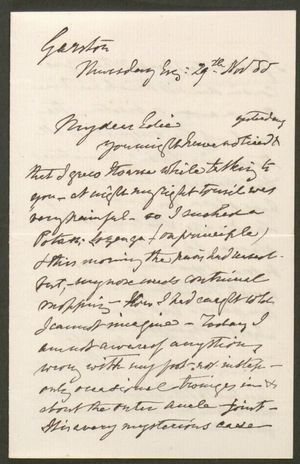 Garston
Thursday Evg: 29th Nov 88
My dear Edie yesterday
You might have noticed
that I grew Hoarse while talking to
you – at night my right tonsil was
very painful – so I sucked a
Potash lozenge – (on principle)
& this morning the pain had
but, my nose needs continual
mopping – How I had caught cold
I cannot imagine – Today I
am not aware of anything
wrong with my foot – nor instep –
only occasional twinges in &
about the outer ancle – joint –
It is a very mysterious case